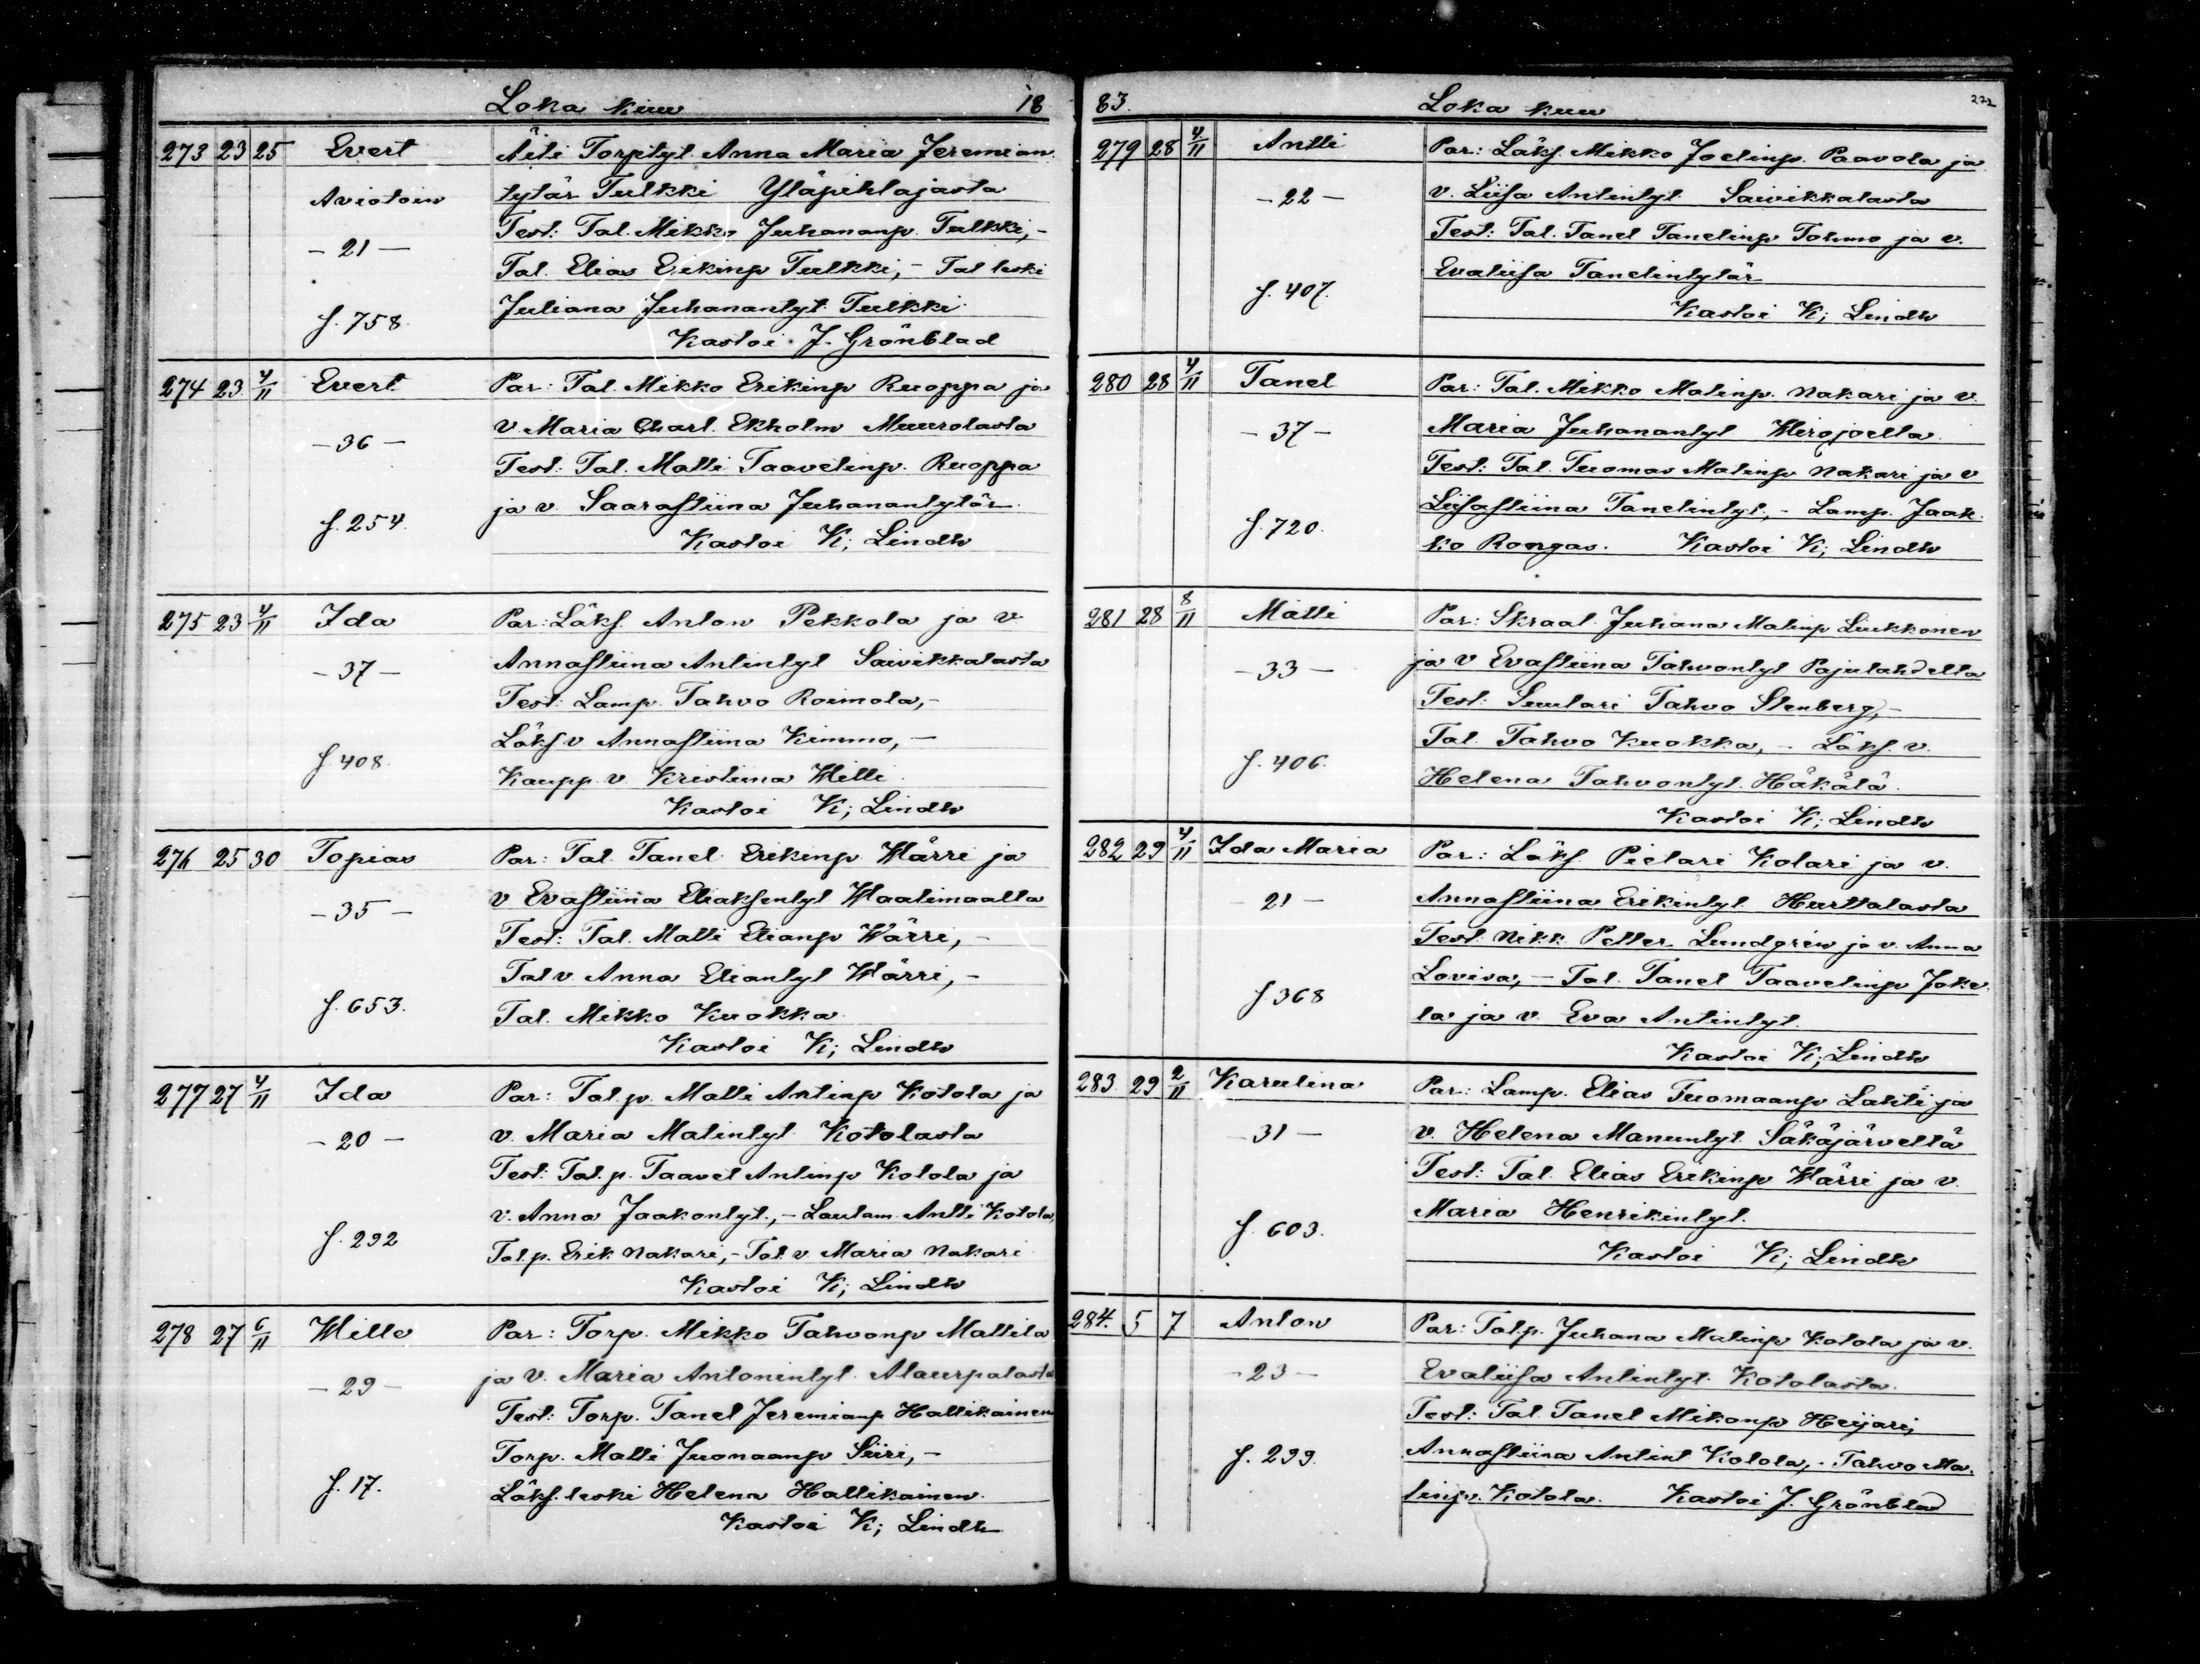 Loka kuu 18
273 23 25 Evert Äiti Torp.tyt. Anna Maria Jeremian
Aviotoin tytär Tulkki Yläpihlajasta
- 21 - Test: Tal. Mikko Juhananp. Tulkki, -
Tal. Elias Erikinp Tulkki, - Tal leski
f. 758. Juliana Juhanantyt. Tulkki
Kastoi J. Grönblad
274 23. 4/11 Evert Par: Tal. Mikko Erikinp Ruoppa ja
- 36 - v. Maria Charl. Ekholm Muurolasta
Test: Tal. Matti Taavetinp. Ruoppa
f. 254. ja v. Saarastiina Juhanantytär.
Kastoi K; Lindh
275 23 4/11 Ida Par: Läks. Anton Pekkola ja v.
- 37 - Annastiina Antintyt Saivikkalasta
Test: Lamp. Tahvo Roimola, -
f 408. Läks v Annastiina Kimmo, -
Kaupp. v Kristiina Willi.
Kastoi K; Lindh
276 25 30 Topias Par: Tal. Tanel Erikinp Wärri ja
- 35 - v Evastiina Eliaksentyt Waalimaalta
Test: Tal. Matti Elianp Wärri, -
Tal v Anna Eliantyt Wärri, -
f. 653. Tal. Mikko Kuokka.
Kastoi K; Lindh
277 27 4/11 Ida Par: Tal. p. Matti Antinp Kotola ja
- 20 - v. Maria Matintyt Kotolasta
Test: Tal. p. Taavet Antinp Kotola ja
v. Anna Jaakontyt., - Lautam. Antti Kotola,
f. 292 Tal p. Erik Nakari, - Tal. v. Maria Nakari
Kastoi K; Lindh
278 27 6/11 Wille Par: Torp. Mikko Tahvonp Mattila
- 29 - ja v. Maria Antonintyt. Alaurpalasta
Test: Torp. Tanel Jeremianp Hallikainen
Torp. Matti Juonaanp Siiri, -
f. 17. Läks. leski Helena Hallikainen.
Kastoi K; Lindh
83. Loka kuu 272
279 28 4/11 Antti Par: Läks. Mikko Joelinp. Paavola ja
- 22 - v. Liisa Antintyt Saivikkalasta
Test: Tal. Tanel Tanelinp Tohmo ja v.
Evaliisa Tanelintytär
f. 407. Kastoi K; Lindh
280 28 4/11 Tanel Par: Tal. Mikko Matinp. Nakari ja v.
- 37 - Maria Juhanantyt Wirojoelta.
Test: Tal. Tuomas Matinp Nakari ja v
f. 720. Liisastiina Tanelintyt., - Lamp. Jaak
ko Rongas. Kastoi K; Lindh
281 28 8/11 Matti Par: Skraal. Juhana Matinp Liukkonen
- 33 - ja v Evastiina Tahvontyt Pajulahdelta
Test: Suutari Tahvo Stenberg, -
Tal. Tahvo Kuokka, - Läks. v.
f. 406. Helena Tahvontyt. Häkälä.
Kastoi K; Lindh
282 29 4/11 Ida Maria Par: Läks. Pietari Kolari ja v.
- 21 - Annastiina Erikintyt Hurttalasta
Test Nikk Petter Lundgrén ja v. Anna
Lovisa, - Tal. Tanel Taavetinp Joke
f 368 la ja v. Eva Antintyt.
Kastoi K; Lindh
283. 29 2/11 Karulina Par: Lamp. Elias Tuomaanp Lahti ja
- 31 - v. Helena Manuntyt. Säkäjärveltä
Test: Tal. Elias Erikinp Wärri ja v.
f. 603. Maria Henrikintyt.
Kastoi K; Lindh
284. 5 7 Anton Par: Tal.p. Juhana Matinp Kotola ja v.
- 23 - Evaliisa Antintyt. Kotolasta.
Test: Tal. Tanel Mikonp Heijari,
f. 299. Annastiina Antint Kotola, - Tahvo Ma-
tinp. Kotola. Kastoi J. Grönblad